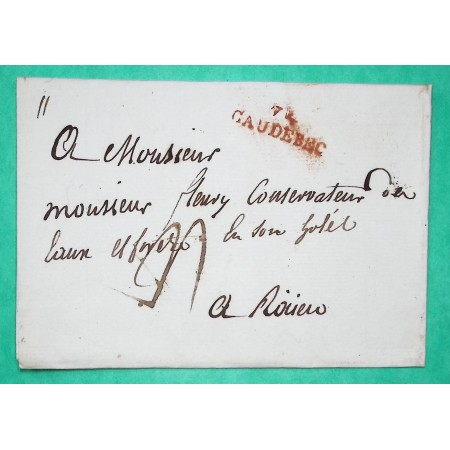 74
CAUDEBEC
A Monsieur
monsieur fleury Conservateur des
Eaux et forets En son hotel
A Roüen